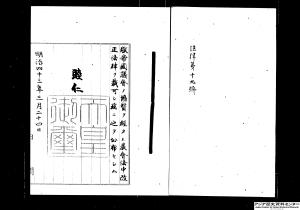 法律第十九號
朕帝國議會ノ協贊ヲ經タル
正法律ヲ裁可シ茲ニ之ヲ公布セシム
睦仁
天皇御璽
明治四十三年三月二十四日
アジア歴史資料センター